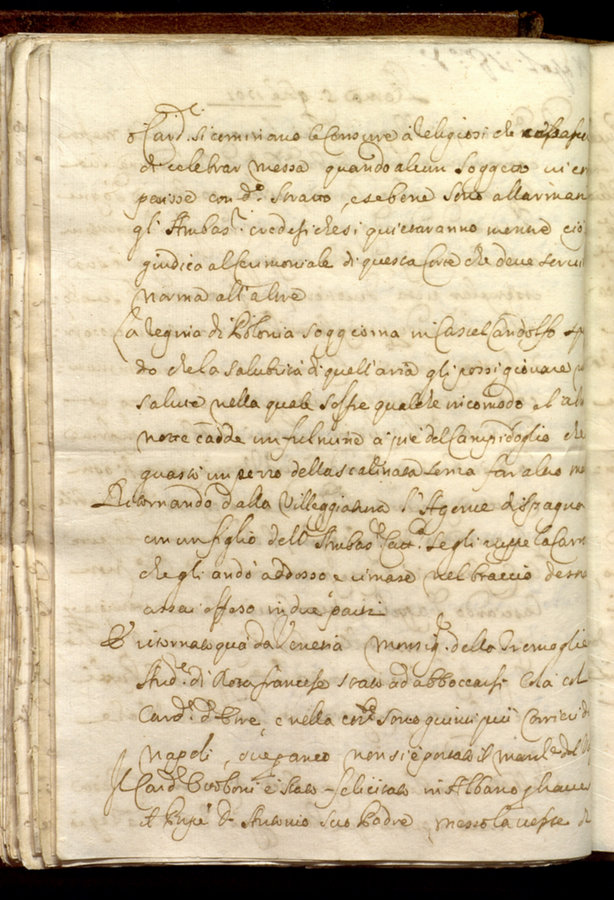 Card. si cominiano le Censure à Religiosi che
di celebrar messa quando alcun soggetto vi
parisse con d.o stratto, e se bene sono allarman
gl'Ambas.ri credesi che si quietaranno mentre ciò
giudica al Cerimoniale di questa Corte che deve servir
norma all'altre
La Regina di Polonia soggiorna in Castel Candolfo
do che la salubrità di quell'aria gli possi giovare
salute nella quale soffre qualche incomodo el'al
notte cadde un fulmine a piè del Campidoglio che
guastò un pezzo della scalinata senza far altro
Ritornando dalla Villeggiatura l'Agente di Spagna
con un figlio dell'Ambas.re Catt.o se gli ruppe la Carr
che gli andò addosso e rimase nel braccio destro
assai offeso in due parti
È ritornato quà da Venetia Monsig.r della Tremoglie
Aud.re di Rota francese stato ad abboccarsi colà col
Card.l d'Etre, e nella sono quivi più Corrieri di
Napoli,
Il Card.l Ottoboni è stato felicitato in Albano
D. Antonio suo Padre, messo la veste